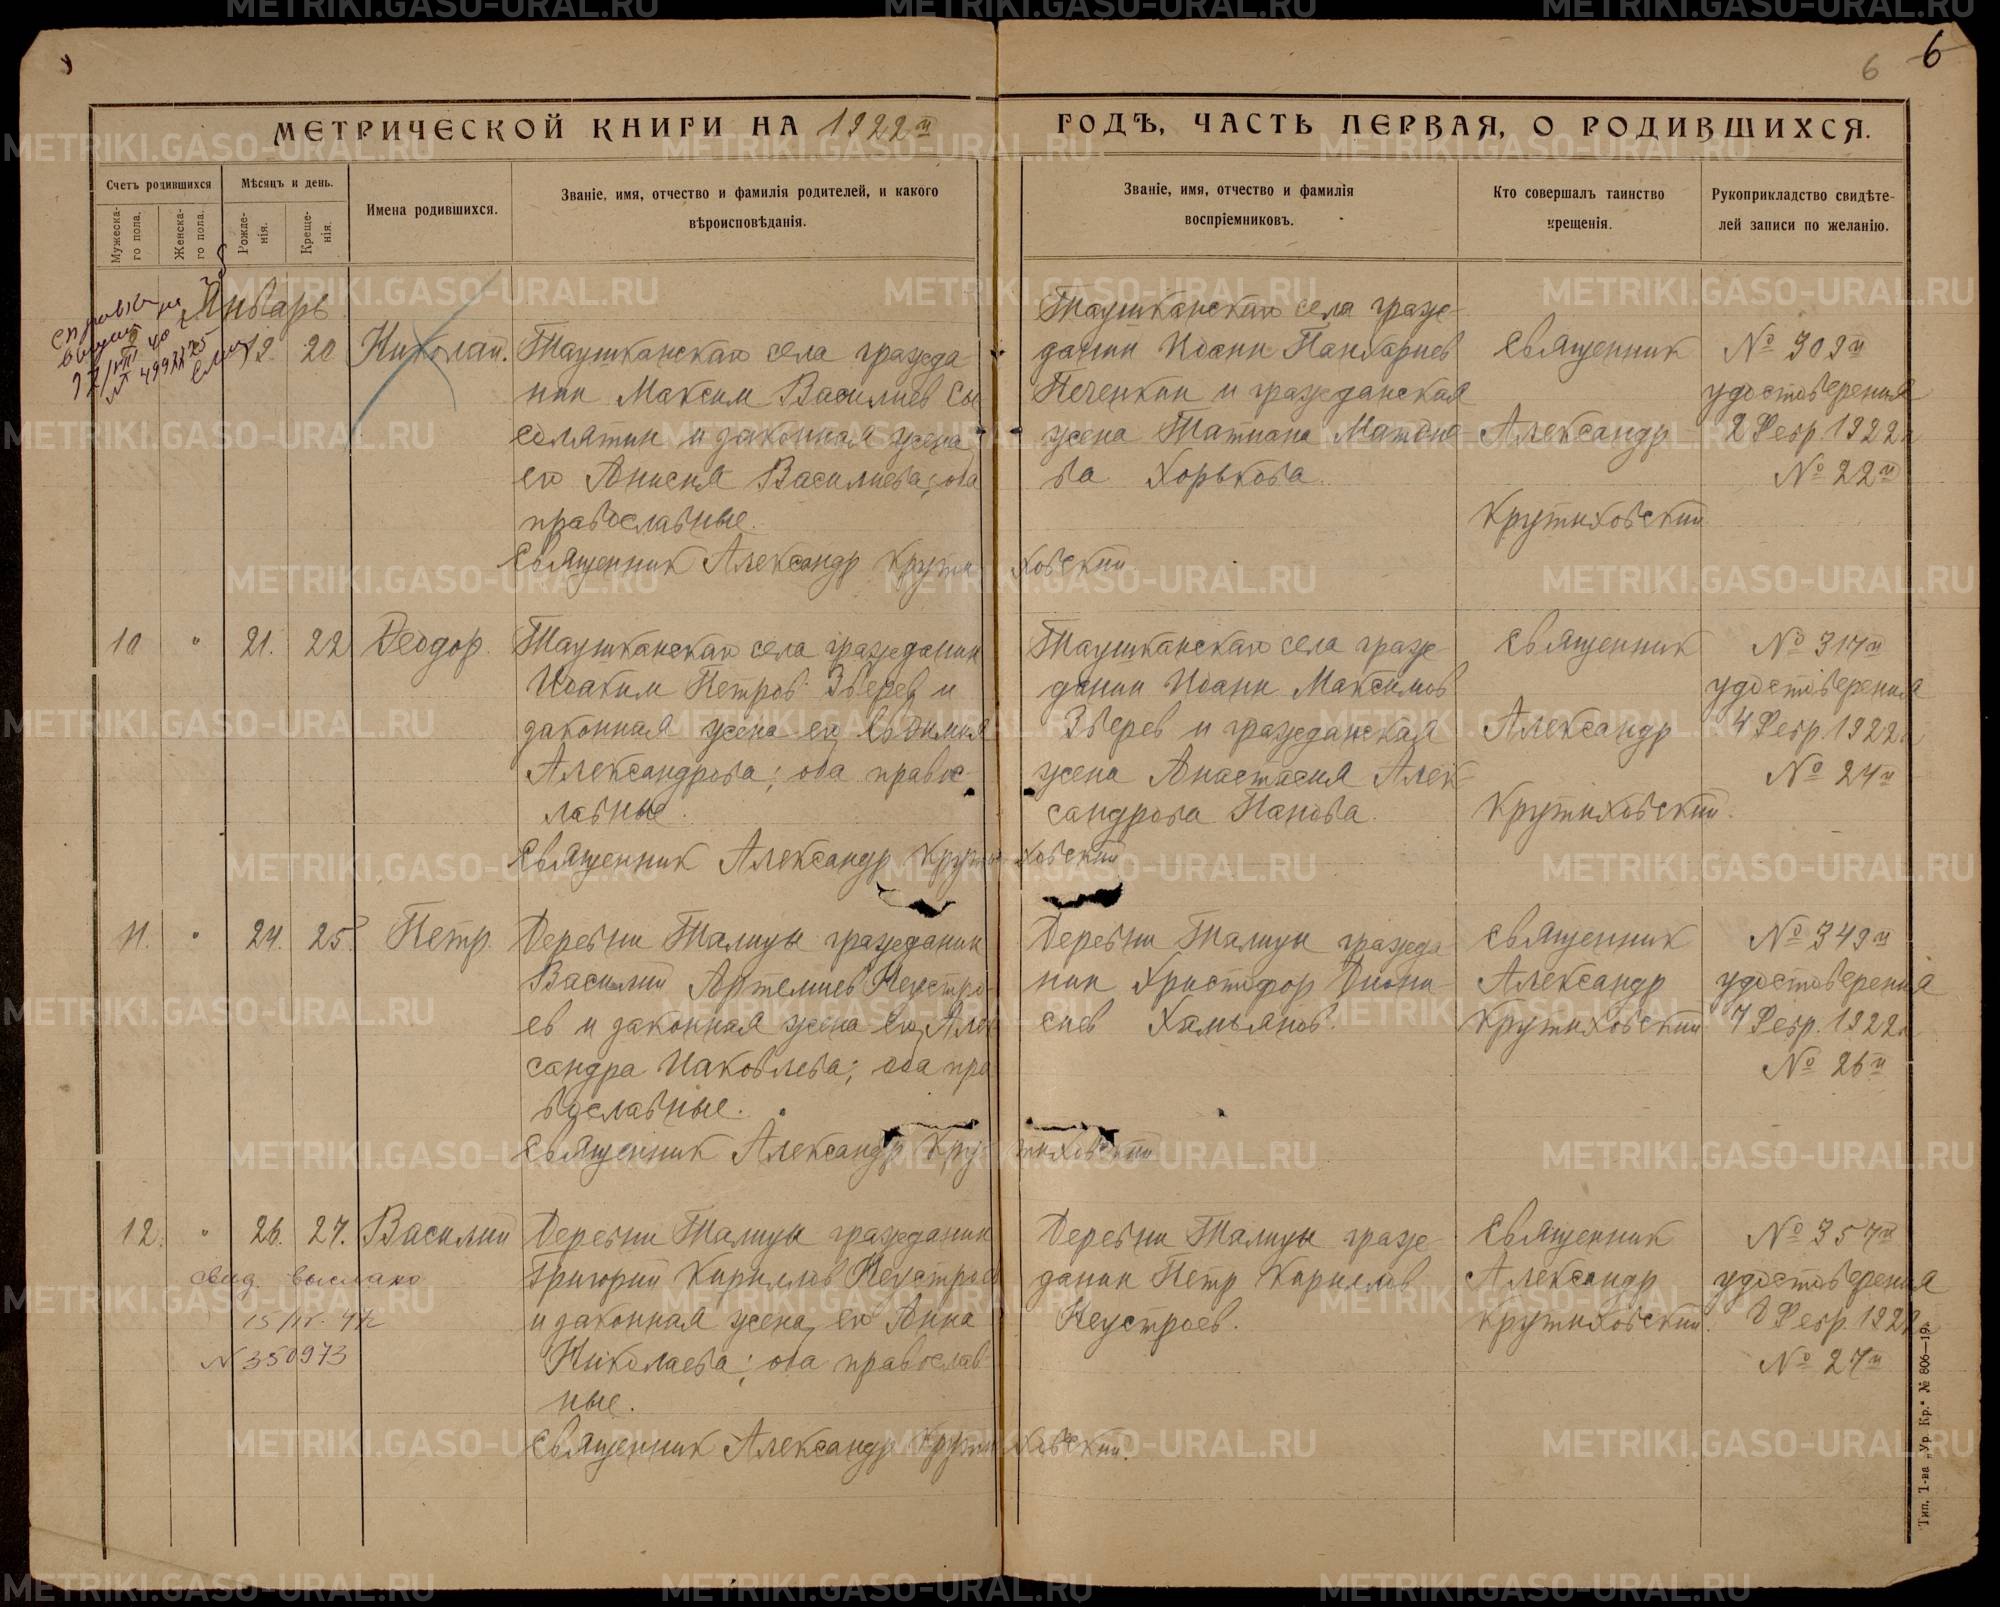 6 6
МЕТРИЧЕСКОЙ КНИГИ НА 1922й ГОДЪ, ЧАСТЬ ПЕРВАЯ, О РОДИВШИХСЯ.
Счетъ родившихся
Мужеска-го пола.
Женска-го пола.
Мѣсяцъ и день.
Рожде-нія.
Креще-нія.
Имена родившихся.
Званіе, имя, отчество и фамилія родителей, и какого
вѣроисповѣданія.
Званіе, имя, отчество и фамилія
воспріемниковъ.
Кто совершалъ таинство
крещенія.
Рукоприкладство свидѣте-
лей записи по желанію.
Январь
19. 20 Николай.
Таушканскаго села гражда-
нин Максим Василиев Сы
солятин и законная жена
его Анисия Василиева; оба
православные.
Священник Александр Крути-ховский
Таушканскаго села граж-
данин Иоанн Панкариев
Печенкин и гражданская
жена Татиана Матфие-
ва Хорькова.
Священник
Александр
Крутиховский
№ 309й
удостоверения
2 Февр. 1922г
№ 22й
10 " 21. 22 Феодор.
Таушканскаго села гражданин
Иоаким Петров Зверев и
законная жена его Евфимия
Александрова; оба правос-
лавные.
Священник Александр Крути-ховский
Таушканскаго села граж-
данин Иоанн Максимов
Зверев и гражданская
жена Анастасия Алек-
сандрова Панова.
Священник
Александр
Крутиховский.
№ 317й
удостоверения
4 Февр. 1922г
№ 24й
11. " 24. 25. Петр.
Деревни Талицы гражданин
Василий Артемиев Неустро-
ев и законная жена его Алек
сандра Иаковлева; оба пра
вославные.
Священник Александр Кру-тиховский
Деревни Талицы гражда-
нин Христофор Диони-
сиев Хамьянов.
Священник
Александр
Крутиховский
№ 349й
удостоверения
7 Февр. 1922г
№ 26й
12. " 26. 27. Василий
свид. выслано
15/IV. 47г
№ 350973
Деревни Талицы гражданин
Григорий Кириллов Неустроев
и законная жена его Анна
Николаева; оба православ-
ные.
Священник Александр Крути-ховский.
Деревни Талицы граж-
данин Петр Кирилов
Неустроев.
Священник
Александр
Крутиховский.
№ 357й
удостоверения
8 Февр. 1922г
№ 27й
Тип. Т-ва „Ур. Кр.“ № 806—19.
METRIKI.GASO-URAL.RU